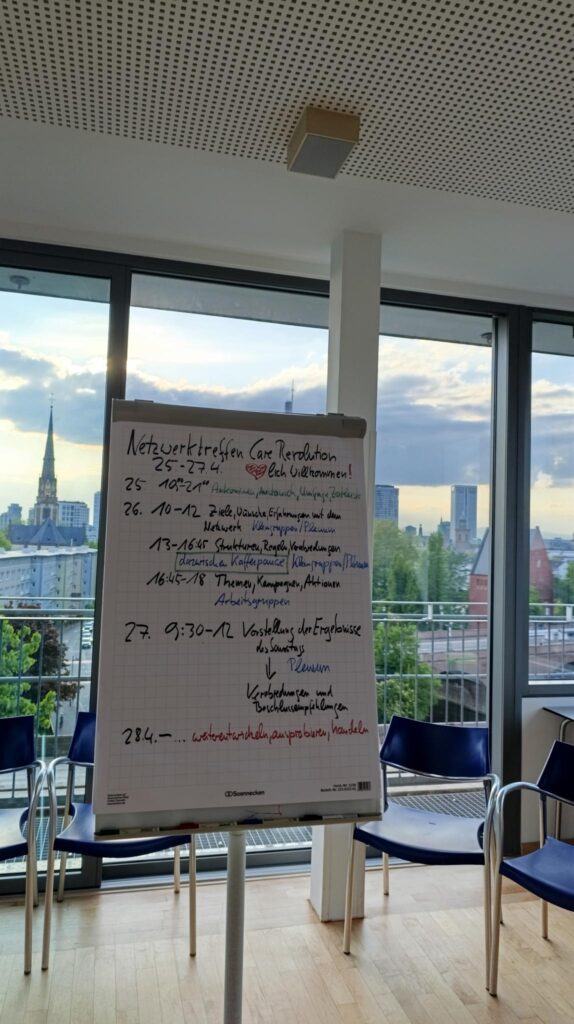 Netzwerktreffen Care Revolution
25-27.4. lich Willkommen!
25 19⁰⁰-21⁰⁰ Ankommen, Austausch, Umfrage,
26. 10-12 Ziele, Wünsche, Erfahrungen mit dem
Netzwerk Kleingruppen/Plenum
13-16:45 Strukturen, Regeln, Verabredungen
dazwischen Kaffeepause Kleingruppen/Plenum
16:45-18 Themen, Kampagnen, Aktionen
Arbeitsgruppen
27. 9:30-12 Vorstellung der Ergebnisse
des Samstags
↓ Plenum
Verabredungen und
Beschlussempfehlungen
28.4. - ... weiterentwickeln, ausprobieren, handeln
Soennecken